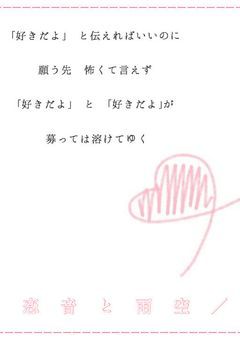 「好きだよ」 と伝えればいいのに
願う先 怖くて言えず
「好きだよ」 と 「好きだよ」が
募っては溶けてゆく
恋音と雨空/